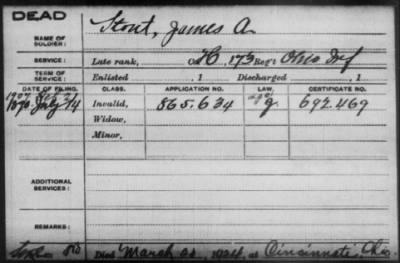 DEAD
NAME OF SOLDIER: Stout, James A.
SERVICE: Late rank, Co. H, 173 Reg't Ohio Inf
TERM OF SERVICE: Enlisted , 1 Discharged , 1
DATE OF FILING. CLASS. APPLICATION NO. LAW. CERTIFICATE NO.
July 14 Invalid, 865.634 692.469
Widow,
Minor,
ADDITIONAL SERVICES:
REMARKS:
Died March , 1924, at Cincinnati, Ohio